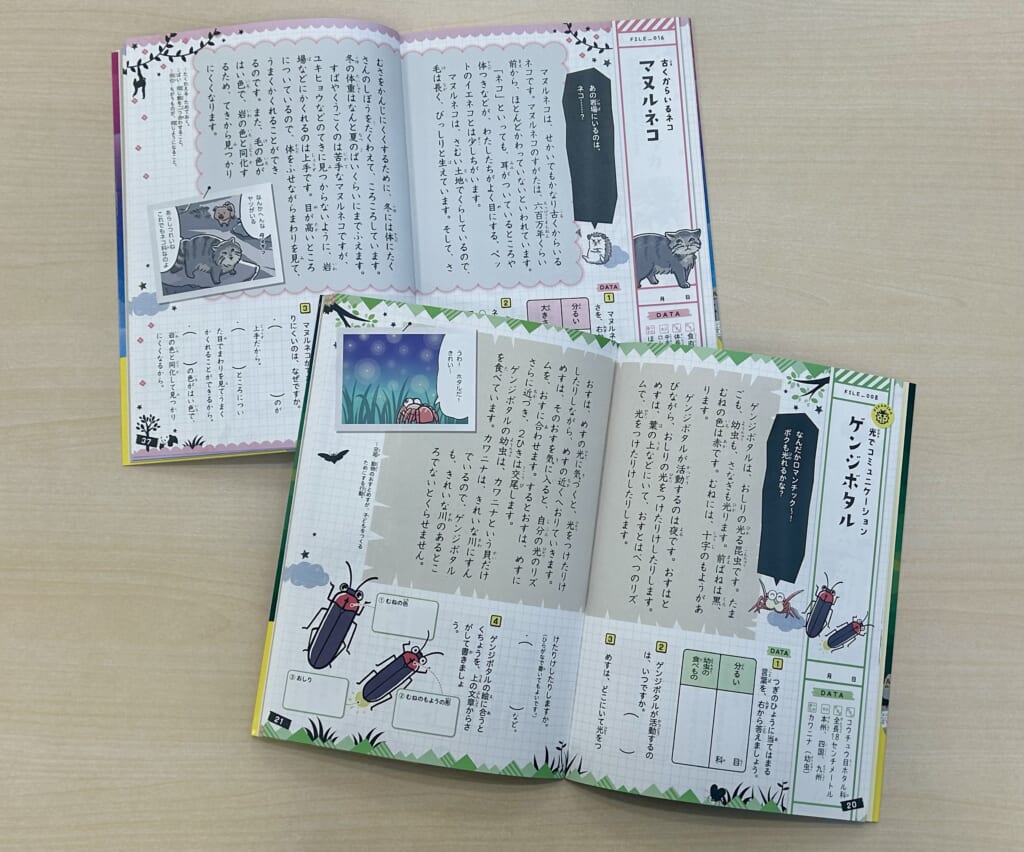 FILE_016
古くからいるネコ
マヌルネコ
月 日
DATA
あの岩場にいるのは、
ネコ……？
マヌルネコは、せかいでもかなり古くからいる
ネコです。マヌルネコのすがたは、六百万年くらい
前から、ほとんどかわっていないといわれています。
「ネコ」といっても、耳がついているところや
体つきなどが、わたしたちがよく目にする、ペッ
トのイエネコとは少しちがいます。
マヌルネコは、さむい土地でくらしているので、
毛は長く、びっしりと生えています。そして、さ
むさをかんじにくくするために、冬には体にたく
さんのしぼうをたくわえて、ころころしています。
冬の体重はなんと夏のばいくらいにまでふえます。
すばやくうごくのは苦手なマヌルネコですが、
ユキヒョウなどのてきに見つからないように、岩
場などにかくれるのは上手です。目が高いところ
についているので、体をふせながらまわりを見て、
うまくかくれることができ
るのです。また、毛の色が
はい色で、岩の色と同化す
るため、てきから見つかり
にくくなります。
なんかへんな
ヤツがいる
あらしつれいね
これでもネコ科なのよ
DATA
1
マヌル
さを、右
分るい
大きさ
2
3
マヌルネコが
りにくいのは、なぜですか。
・( )のが
上手だから。
・( )ところについ
た目でまわりを見てうまく
かくれることができるから。
・( )の色がはい色で、
岩の色と同化して見つかり
にくくなるから。
37
FILE_008
光でコミュニケーション
ゲンジボタル
月 日
DATA
コウチュウ目ホタル科
全長18センチメートル
本州、四国、九州
カワニナ（幼虫）
なんだかロマンチック〜！
ボクも光れるかな？
ゲンジボタルは、おしりの光る昆虫です。たま
ごも、幼虫も、さなぎも光ります。前ばねは黒、
むねの色は赤です。むねには、十字のもようがあ
ります。
ゲンジボタルが活動するのは夜です。おすはと
びながら、おしりの光をつけたりけしたりします。
めすは、葉の上などにいて、おすとはべつのリズ
ムで、光をつけたりけしたりします。
おすは、めすの光に気づくと、光をつけたりけ
したりしながら、めすの近くへおりていきます。
めすは、そのおすを気に入ると、自分の光のリズ
ムを、おすに合わせます。するとおすは、めすに
さらに近づき、２ひきは交尾します。
ゲンジボタルの幼虫は、カワニナという貝だけ
を食べています。カワニナは、きれいな川にすん
でいるので、ゲンジボタル
も、きれいな川のあるとこ
ろでないとくらせません。
うわ〜、ホタルだ〜
きれい！
DATA
1
つぎのひょうに当てはまる
言葉を、右から答えましょう。
分るい
目
科
幼虫の
食べもの
2
ゲンジボタルが活動するの
は、いつですか。
( )
3
めすは、どこにいて光をつ
けたりけしたりしますか。
(ひらがなで書いてもよいです。)
・( )など。
4
ゲンジボタルの絵に合うと
くちょうを、上の文章からさ
がして書きましょ
う。
①むねの色
②むねのもようの形
③おしり
20
21